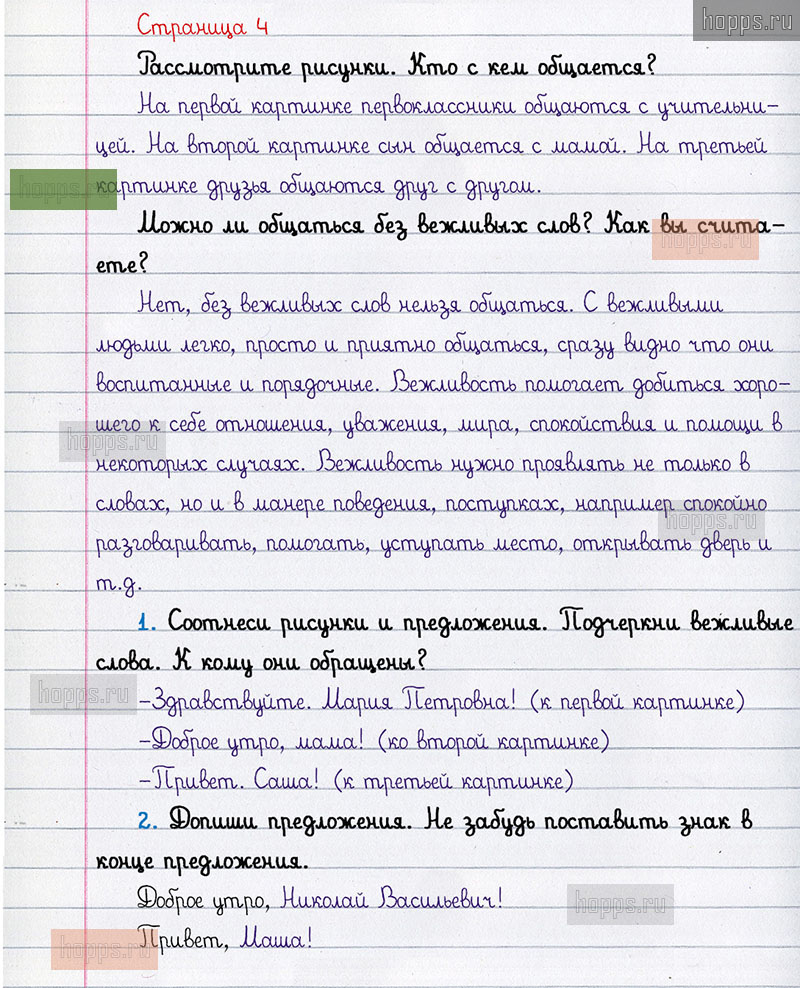 hopps.ru
Страница 4
Рассмотрите рисунки. Кто с кем общается?
На первой картинке первоклассники общаются с учительни-
цей. На второй картинке сын общается с мамой. На третьей
hopps.ru
картинке друзья общаются друг с другом.
Можно ли общаться без вежливых слов? Как вы счита-
hopps.ru
ете?
Нет, без вежливых слов нельзя общаться. С вежливыми
людьми легко, просто и приятно общаться, сразу видно что они
воспитанные и порядочные. Вежливость помогает добиться хоро-
шего к себе отношения, уважения, мира, спокойствия и помощи в
hopps.ru
некоторых случаях. Вежливость нужно проявлять не только в
словах, но и в манере поведения, поступках, например спокойно
hopps.ru
разговаривать, помогать, уступать место, открывать дверь и
т.д.
1. Соотнеси рисунки и предложения. Подчеркни вежливые
слова. К кому они обращены?
hopps.ru
-Здравствуйте. Мария Петровна! (к первой картинке)
-Доброе утро, мама! (ко второй картинке)
-Привет. Саша! (к третьей картинке)
2. Допиши предложения. Не забудь поставить знак в
конце предложения.
Доброе утро, Николай Васильевич!
hopps.ru
Привет, Маша!
hopps.ru